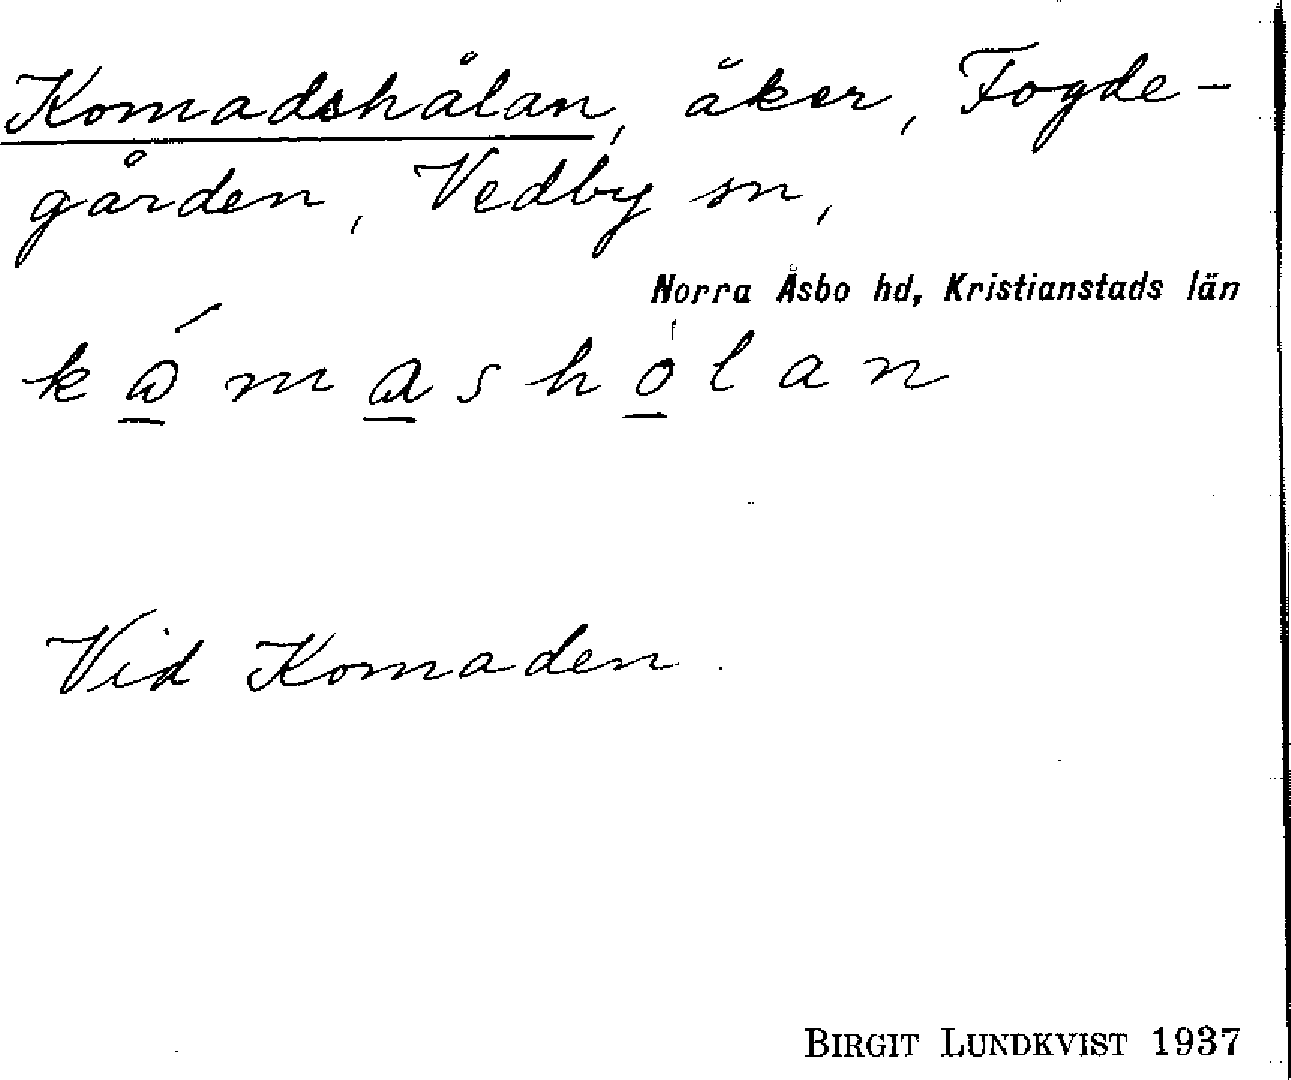 Komadshålan, åker, Fogde-
gården, Vedby sn,
Norra Åsbo hd, Kristianstads län
Vid Komaden.
BIRGIT LUNDKVIST 1937